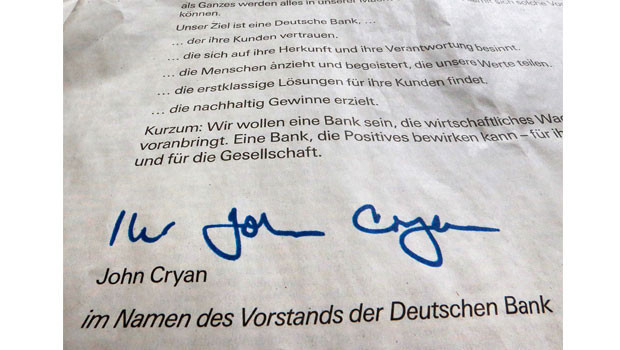 als Ganzes werden alles in unserer
können.
Unser Ziel ist eine Deutsche Bank, ...
... der ihre Kunden vertrauen.
... die sich auf ihre Herkunft und ihre Verantwortung besinnt.
... die Menschen anzieht und begeistert, die unsere Werte teilen.
... die erstklassige Lösungen für ihre Kunden findet.
... die nachhaltig Gewinne erzielt.
Kurzum: Wir wollen eine Bank sein, die wirtschaftliches Wac
voranbringt. Eine Bank, die Positives bewirken kann – für ih
und für die Gesellschaft.
Ihr John Cryan
John Cryan
im Namen des Vorstands der Deutschen Bank